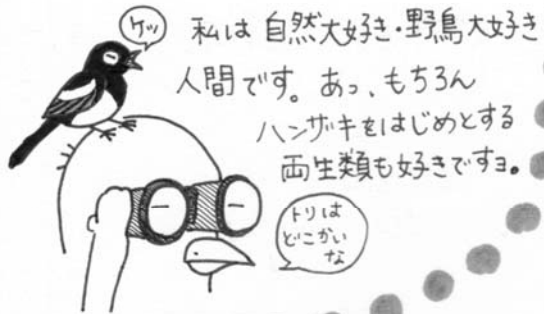 ケッ
私は 自然大好き・野鳥大好き
人間です。あっ、もちろん
ハンザキをはじめとする
両生類も好きですョ。
トリは
どこかい
な